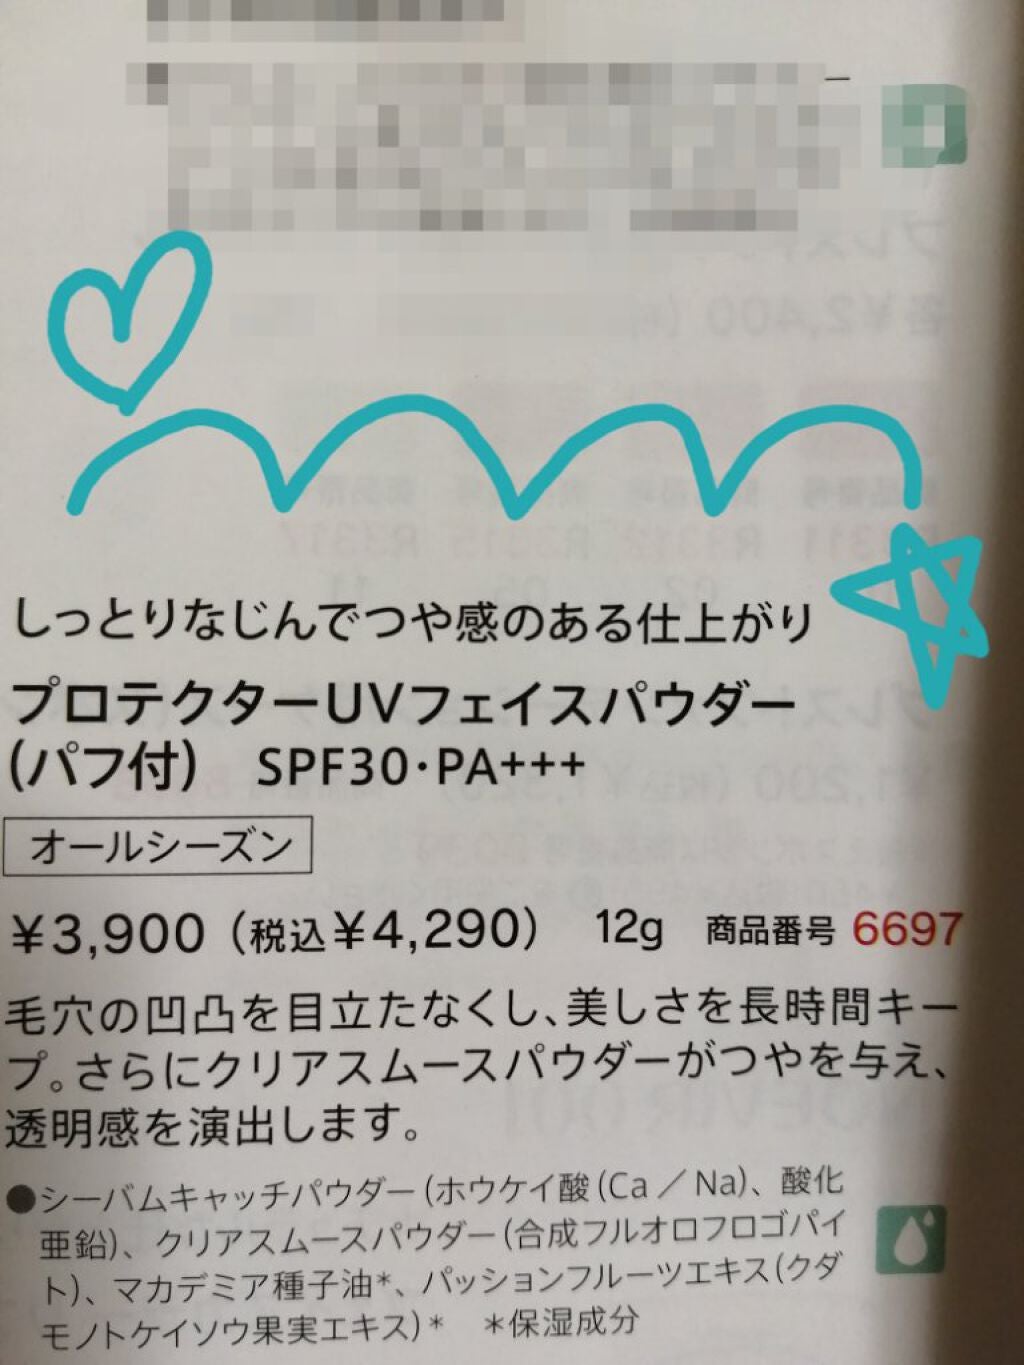 しっとりなじんでつや感のある仕上がり
プロテクターUVフェイスパウダー
(パフ付) SPF30・PA+++
オールシーズン
¥3,900(税込¥4,290) 12g 商品番号 6697
毛穴の凹凸を目立たなくし、美しさを長時間キー
プ。さらにクリアスムースパウダーがつやを与え、
透明感を演出します。
●シーバムキャッチパウダー(ホウケイ酸(Ca/Na)、酸化
亜鉛)、クリアスムースパウダー(合成フルオロフロゴパイ
ト)、マカデミア種子油*、パッションフルーツエキス(クダ
モノトケイソウ果実エキス)* *保湿成分